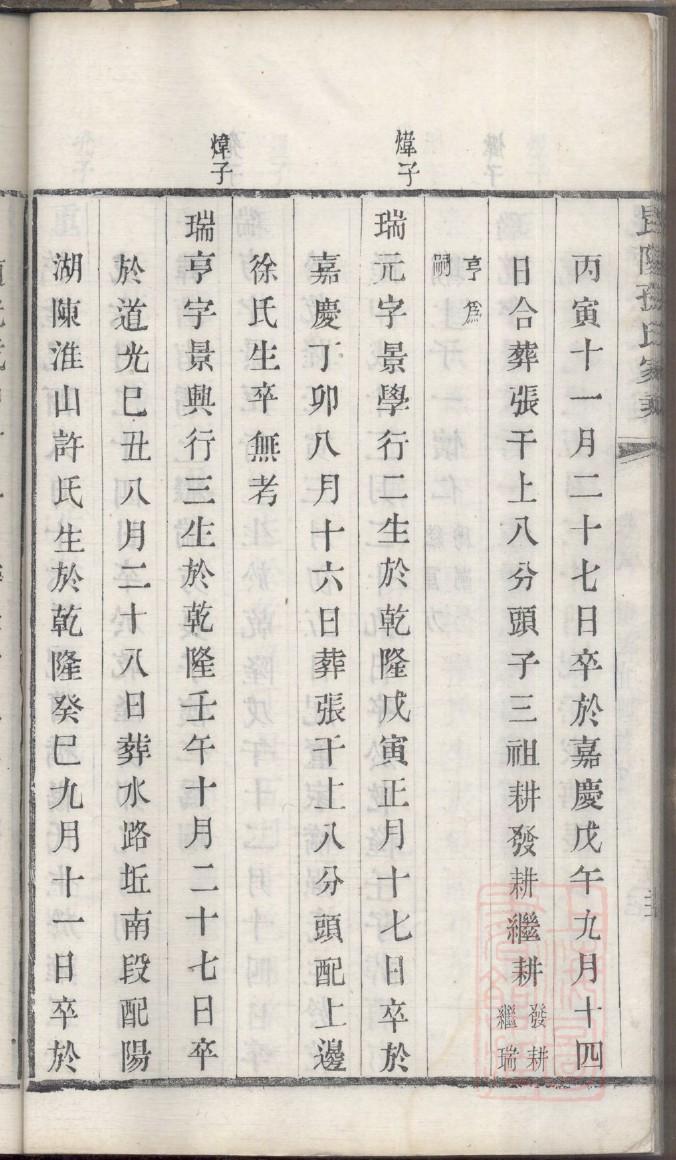 昆陽孫氏家
丙寅十一月二十七日卒於嘉慶戊午九月十四
日合葬張干上八分頭子三祖耕發耕繼耕發耕繼瑞
亨爲嗣
煒子
瑞元字景學行二生於乾隆戊寅正月十七日卒於
嘉慶丁卯八月十六日葬張干上八分頭配上邊
徐氏生卒無考
煒子
瑞亨字景興行三生於乾隆壬午十月二十七日卒
於道光己丑八月二十八日葬水路坵南段配陽
湖陳淮山許氏生於乾隆癸巳九月十一日卒於